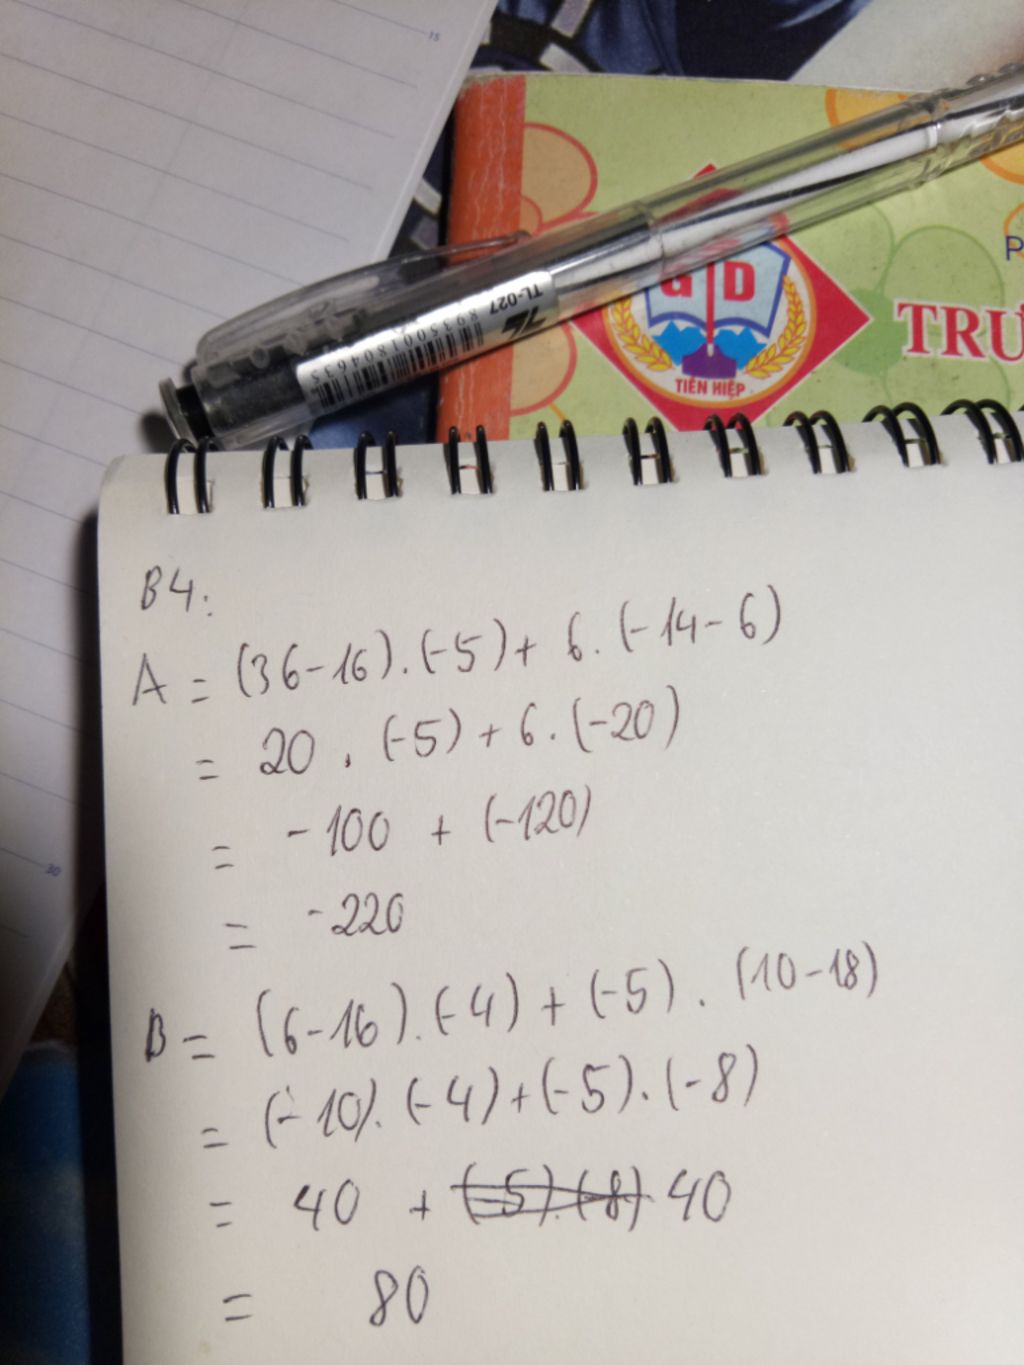 15
P
GD
TRƯ
TIÊN HIỆP
TL-027
8935001804635
30
B4:
A = (36-16).(-5)+ 6.(-14-6)
= 20 . (-5) + 6.(-20)
= -100 + (-120)
= -220
B = (6-16).(-4) + (-5) . (10-18)
= (-10).(-4)+(-5).(-8)
= 40 + (-5).(-8) 40
= 80